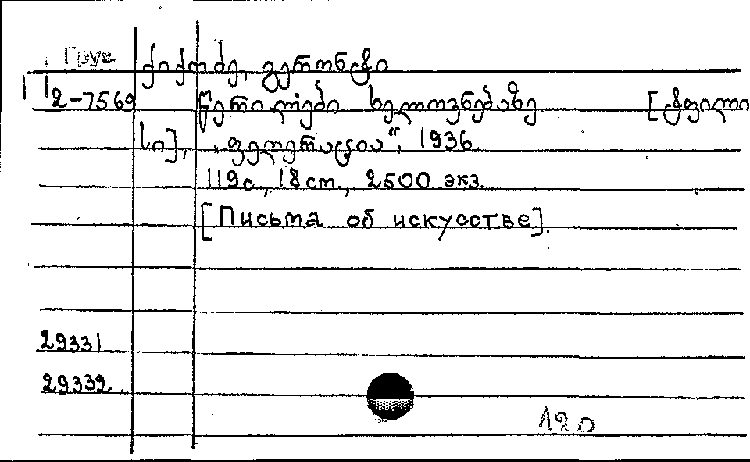 Груз
ქიქოძე, გერონტი
2-7569 წერილები ხელოვნებაზე [ტფილი
სი], „ფედერაცია", 1936.
119с., 18cm., 2500 экз.
[Письма об искусстве].
29331
29339.
120